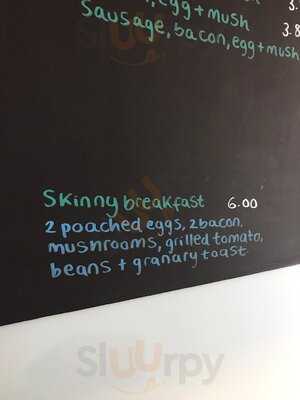 egg + mush 3.
Sausage, bacon, egg + mush 3.8
Skinny breakfast 6.00
2 poached eggs, 2 bacon,
mushrooms, grilled tomato,
beans + granary toast
Sluurpy